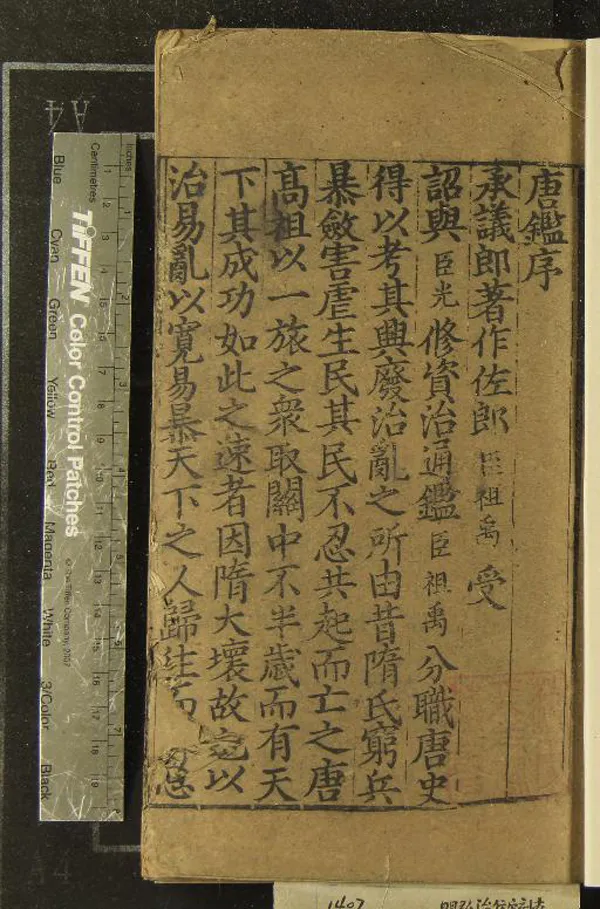 唐鑑序
承議郎著作佐郎臣祖禹受
詔與臣光修資治通鑑臣祖禹分職唐史
得以考其興廢治亂之所由昔隋氏窮兵
暴斂害虐生民其民不忍共起而亡之唐
髙祖以一旅之衆取關中不半歲而有天
下其成功如此之速者因隋大壞故也以
治易亂以寛易暴天下之人歸往而
A4
Inches
Centimetres
TIFFEN Color Control Patches
© The Tiffen Company, 2007
Blue
Cyan
Green
Yellow
Red
Magenta
White
3/Color
Black
1407